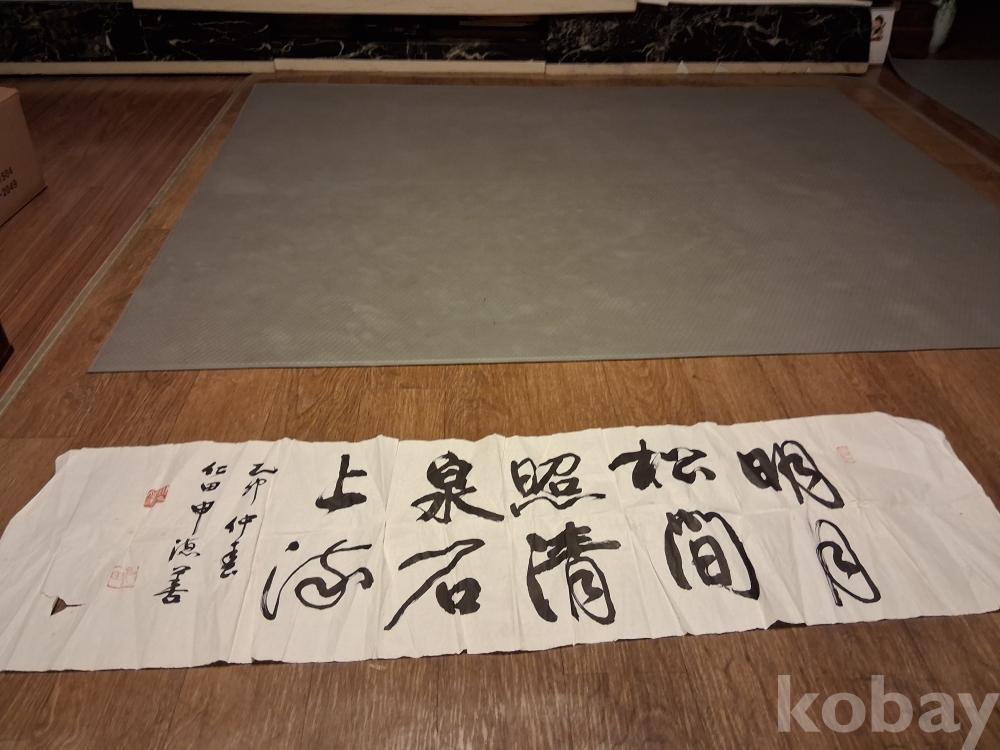 明月
松間
照清
泉石
上流
乙卯仲春
仁田申德善
-2049
kobay